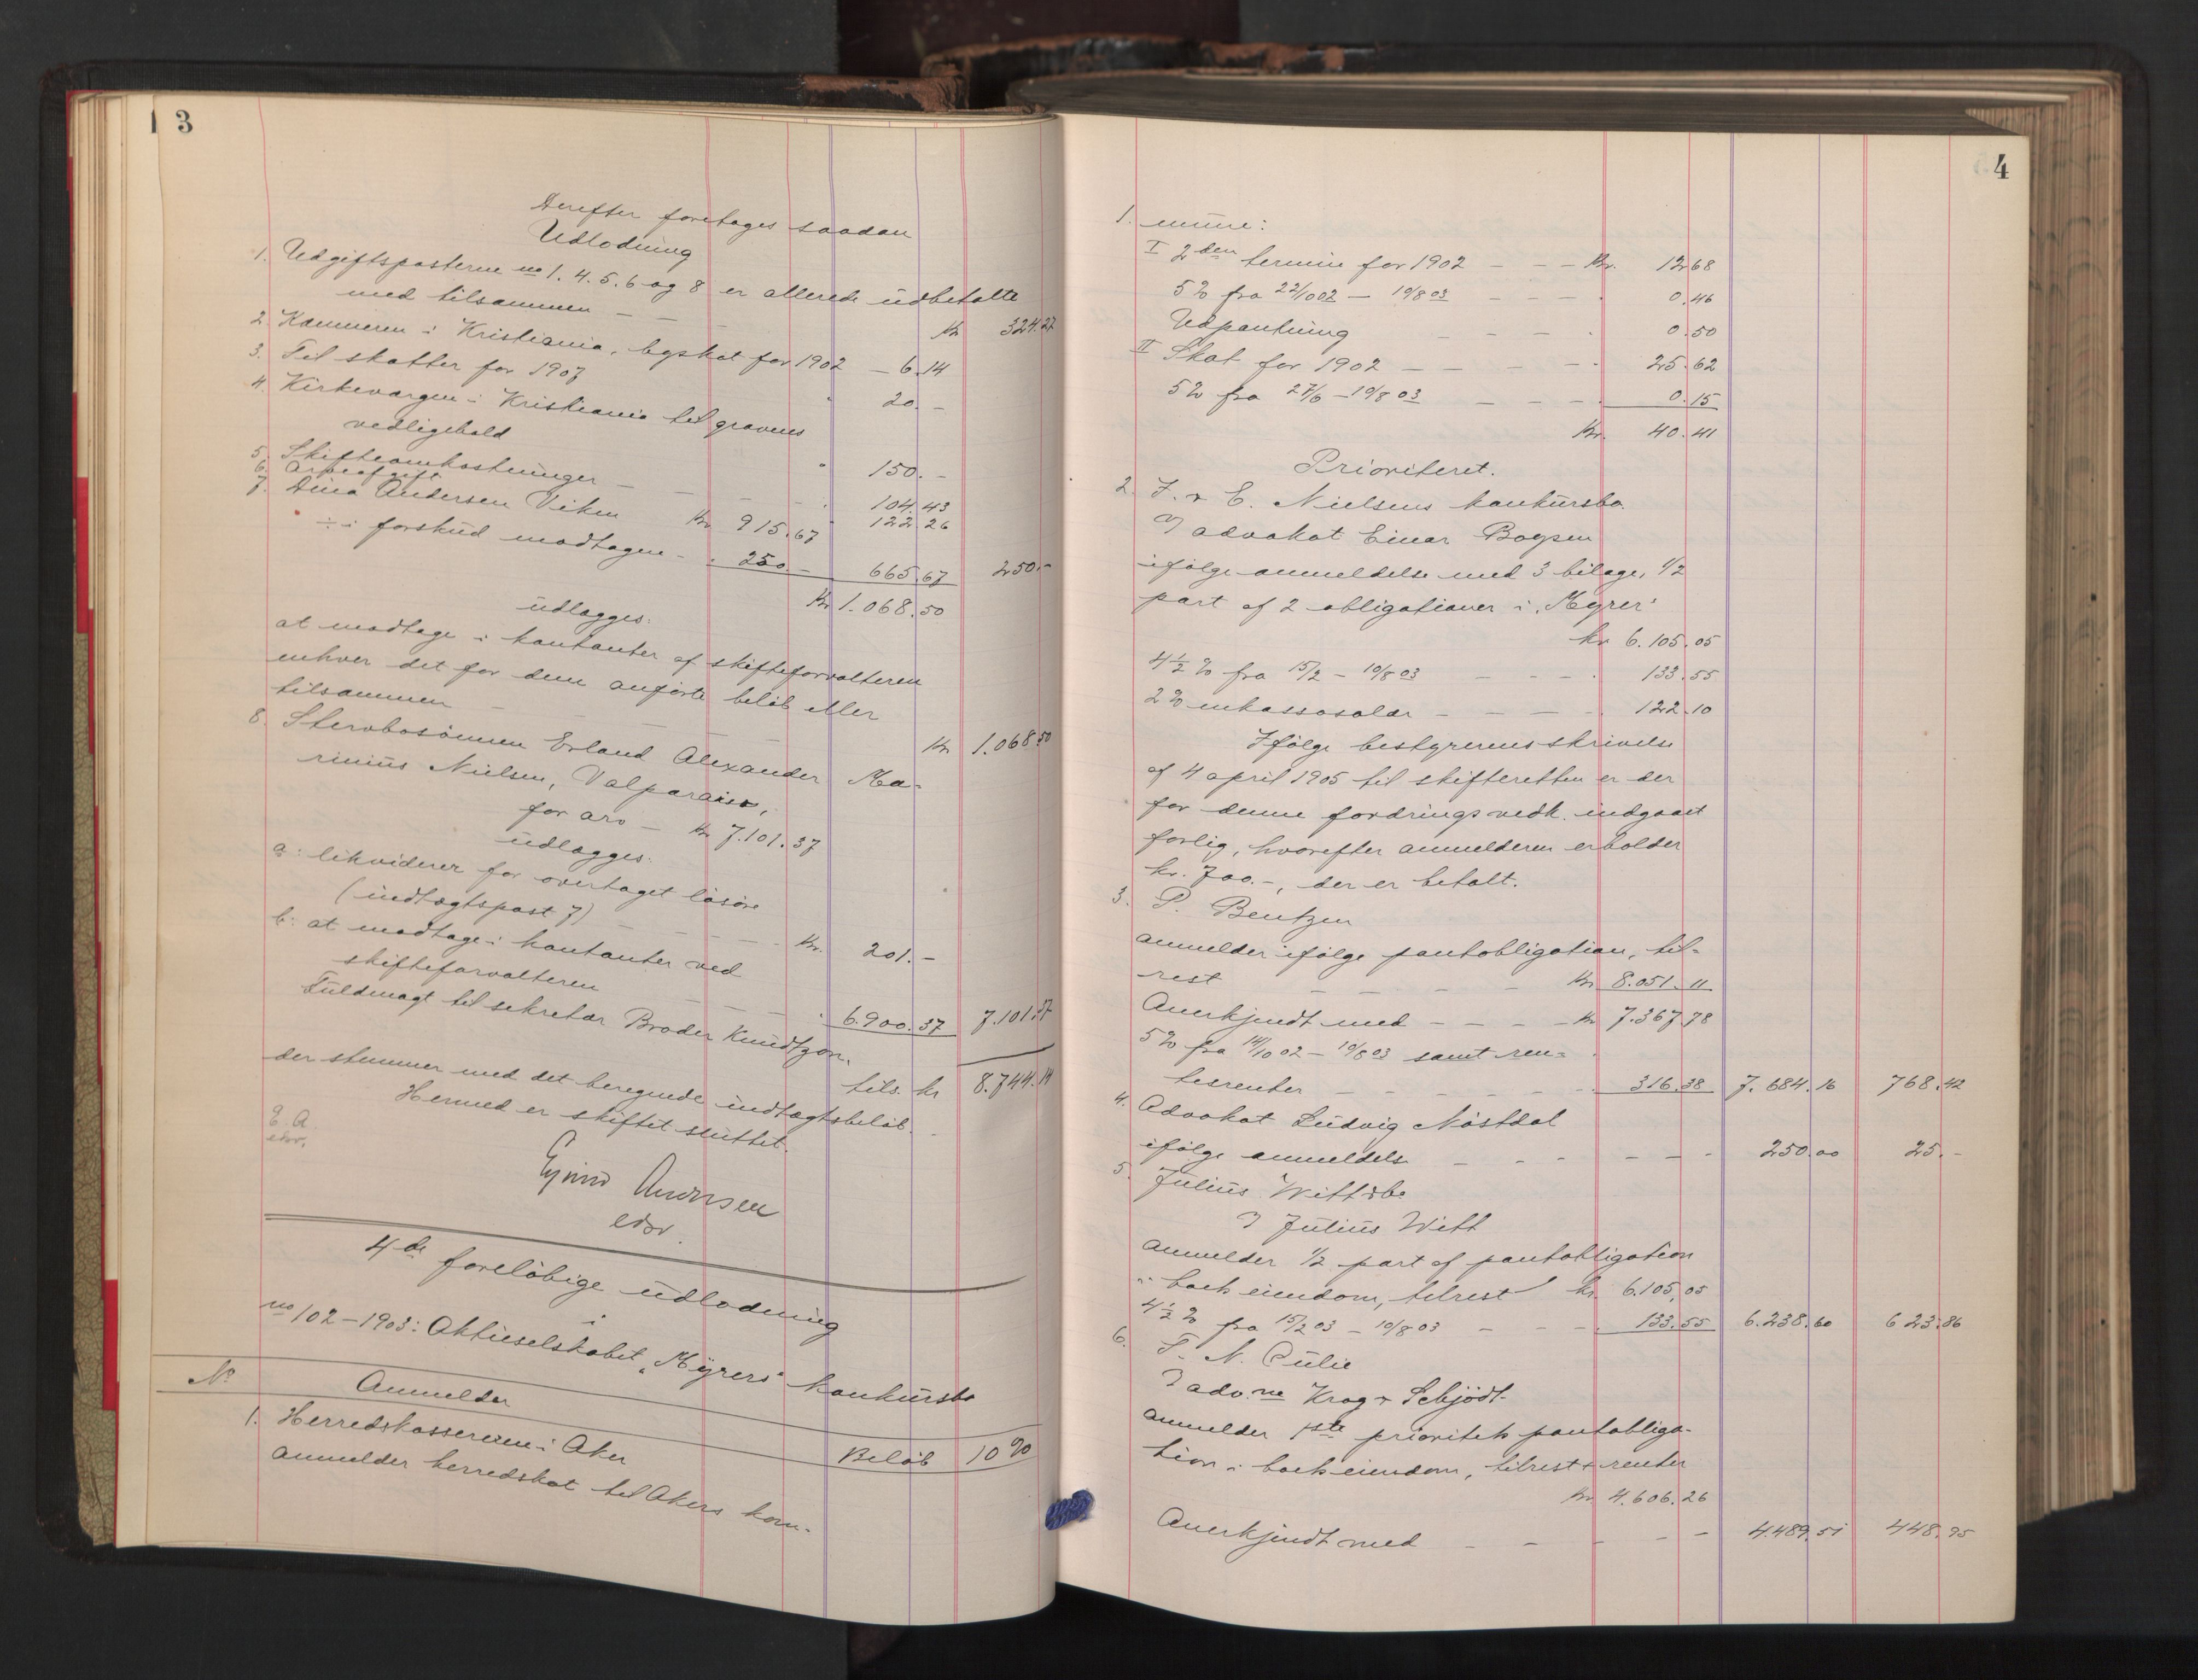 3
Derefter foretages saadan
Udlodning
1. Udgiftsposterne no 1. 4. 5. 6 og 8 er allerede udbetalte
med tilsammen — — — kr 324.27
2. Kæmneren i Kristiania, byskat for 1902 — 6.14
3. Til skatter for 1907 " 20.—
4. Kirkevargen i Kristiania til gravens
vedligehold " 150.—
5. Skifteomkostninger — — — " 104.43
6. Arveafgift " 122.26
7. Dina Andersen Viken kr 915.67
÷ i forskud modtagne — " 250.— 665.67 250.—
kr 1.068.50
udlægges:
at modtage i kontanter af skifteforvalteren
enhver det for dem anførte beløb eller
tilsammen — — — kr 1.068.50
8. Stervbosønnen Erland Alexander Ma-
rinius Nielsen, Valparaiso,
for arv — kr 7.101.37
udlægges:
a: likviderer for overtaget løsøre
(indtægtspost 7) — — — kr. 201.—
b: at modtage i kontanter ved
skifteforvalteren — — — " 6.900.37 7.101.37
Fuldmagt til sekretær Broder Knudtzon.
tils. kr 8.744.14
der stemmer med det beregnede indtægtsbeløb.
Hermed er skiftet sluttet.
E. A.
edsv.
Ejvind Andersen
edsv.
4de foreløbige udlodning
i
no 102 – 1903: Aktieselskabet „Myrers" konkursbo
No Anmelder Beløb 10 %
1. Herredskassereren i Aker
anmelder herredskat til Akers kom-
4
1. mune:
I 2den termin for 1902 — — — Kr. 12.68
5 % fra 22/10 02 — 10/8 03 — — — 0.46
Udpantning — — — 0.50
II Skat for 1902 — — — — 25.62
5 % fra 27/6 — 10/8 03 — — — 0.15
Kr. 40.41
Prioriteret.
2. J. & E. Nielsens konkursbo
v/ advokat Einar Boysen
ifølge anmeldelse med 3 bilage, 1/2
part af 2 obligationer i „Myrer"
kr 6.105.05
4 1/2 % fra 15/2 — 10/8 03 — — — 133.55
2 % inkassosalær — — — — 122.10
Ifølge bestyrerens skrivelse
af 4 april 1905 til skifteretten er der
for denne fordrings vedk. indgaaet
forlig, hvorefter anmelderen erholder
kr. 700.—, der er betalt.
3. P. Bentzen
anmelder ifølge pantobligation, til-
rest — — — — kr 8.051.11
Anerkjendt med — — — — kr 7.367.78
5 % fra 14/10 02 — 10/8 03 samt ren-
tesrenter — — — — 316.38 7.684.16 768.42
4. Advokat Ludvig Nøstdal
ifølge anmeldelse — — — — — 250.00 25.—
5. Julius Witt's bo
v/ Julius Witt
anmelder 1/2 part af pantobligation
i boets eiendom, tilrest kr 6.105,05
4 1/2 % fra 15/2 03 — 10/8 03 — — 133.55 6.238.60 623.86
6. F. N. Culie
v/ adv.ne Krog & Schjødt
anmelder 1ste prioritets pantobliga-
tion i boets eiendom, tilrest & renter
kr 4.606.26
Anerkjendt med — — — — — 4.489.51 448.95